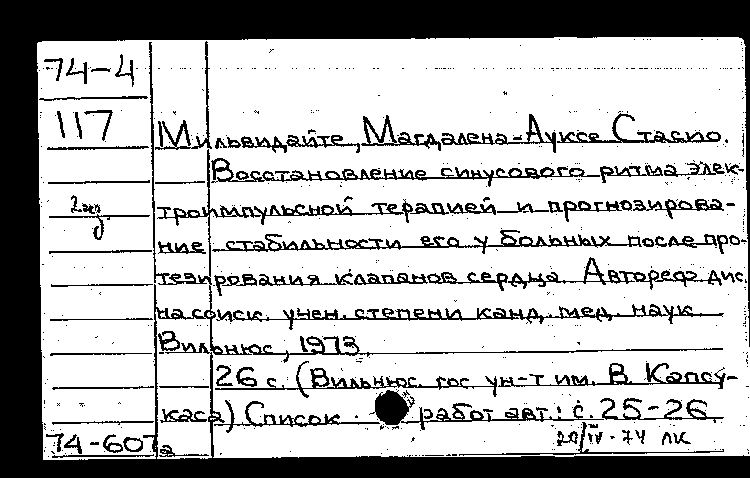 74-4
117
Мильвидайте, Магдалена-Ауксе Стасио.
Восстановление синусового ритма элек-
2 экз.
троимпульсной терапией и прогнозирова-
ние стабильности его у больных после про-
тезирования клапанов сердца. Автореф. дис.
на соиск. учен. степени канд. мед. наук
Вильнюс, 1973.
26 с. (Вильнюс. гос. ун-т им. В. Капсу-
каса) Список работ авт.: с. 25-26.
74-607а
20/IV-74 ЛК